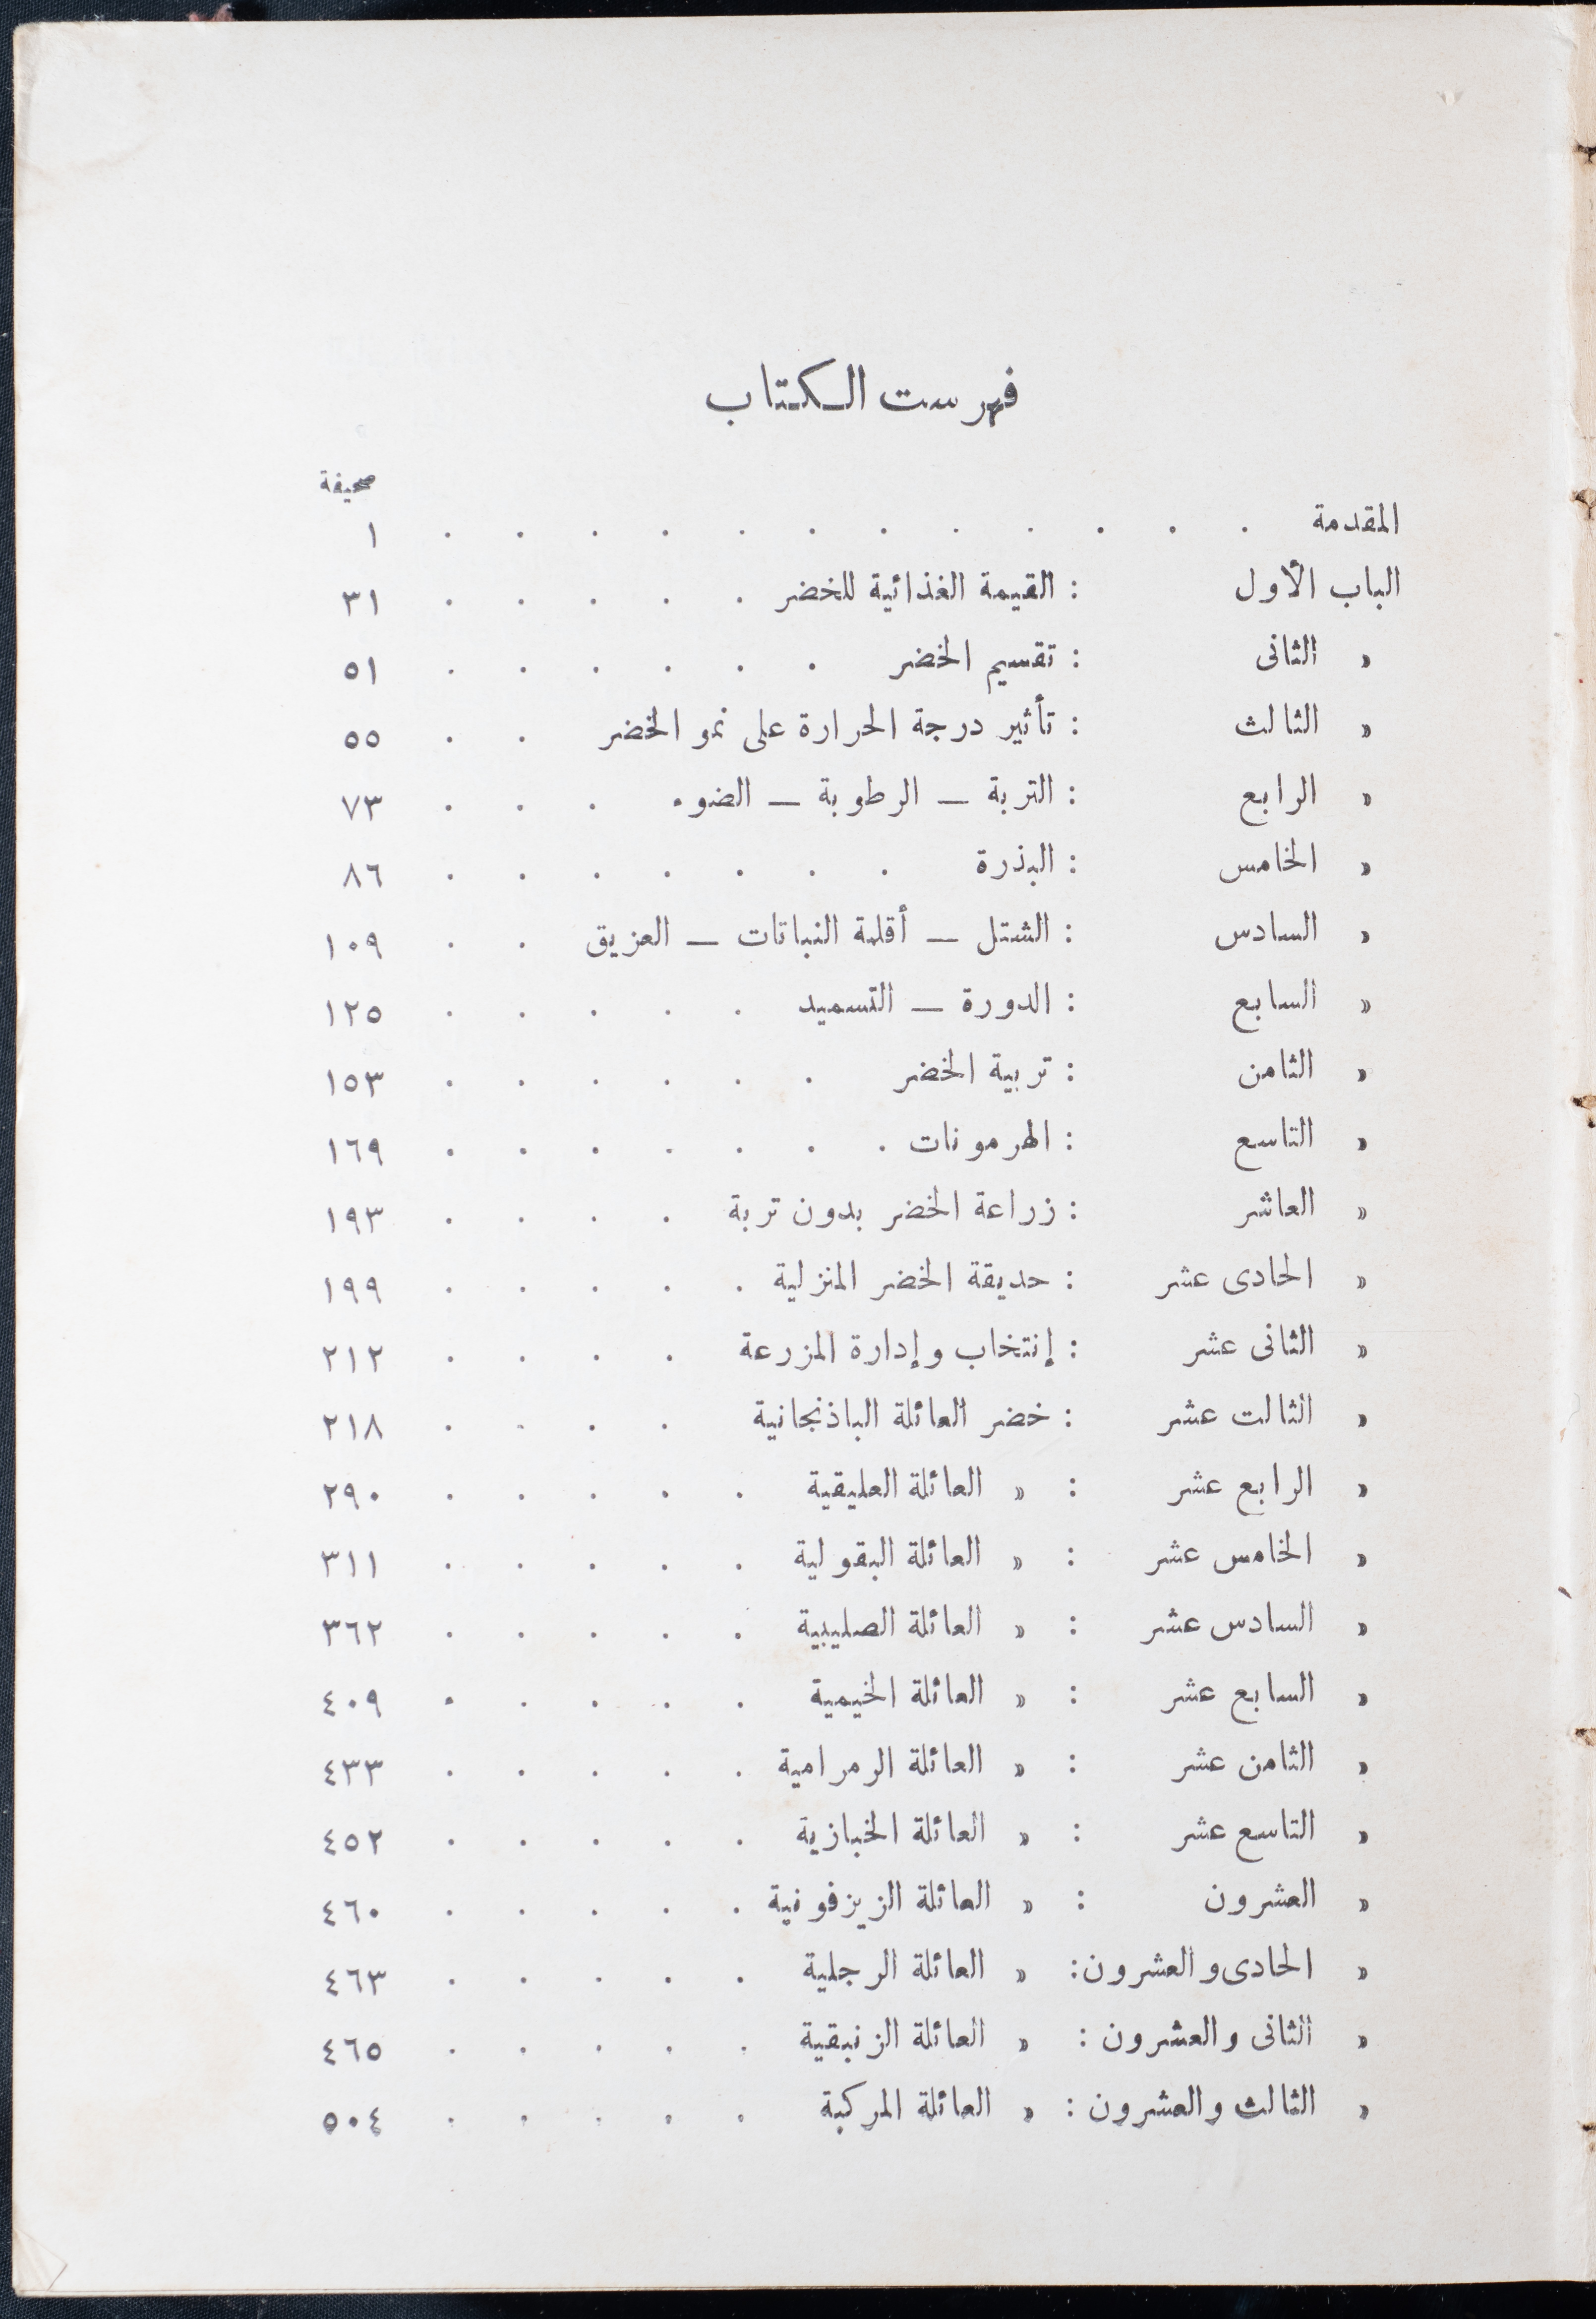 فهرست الكتاب
صحيفة
المقدمة . . . . . . . . . . . . ١
الباب الأول : القيمة الغذائية للخضر . . . . . ٣١
» الثانى : تقسيم الخضر . . . . . . ٥١
» الثالث : تأثير درجة الحرارة على نمو الخضر . . ٥٥
» الرابع : التربة — الرطوبة — الضوء . . . ٧٣
» الخامس : البذرة . . . . . . . ٨٦
» السادس : الشتل — أقلمة النباتات — العزيق . . ١٠٩
» السابع : الدورة — التسميد . . . . . ١٢٥
» الثامن : تربية الخضر . . . . . . ١٥٣
» التاسع : الهرمونات . . . . . . . ١٦٩
» العاشر : زراعة الخضر بدون تربة . . . . ١٩٣
» الحادى عشر : حديقة الخضر المنزلية . . . . . ١٩٩
» الثانى عشر : إنتخاب وإدارة المزرعة . . . . ٢١٢
» الثالث عشر : خضر العائلة الباذنجانية . . . . ٢١٨
» الرابع عشر : » العائلة العليقية . . . . . ٢٩٠
» الخامس عشر : » العائلة البقولية . . . . . ٣١١
» السادس عشر : » العائلة الصليبية . . . . . ٣٦٢
» السابع عشر : » العائلة الخيمية . . . . . ٤٠٩
» الثامن عشر : » العائلة الرمرامية . . . . . ٤٣٣
» التاسع عشر : » العائلة الخبازية . . . . . ٤٥٢
» العشرون : » العائلة الزيزفونية . . . . . ٤٦٠
» الحادى والعشرون : » العائلة الرجلية . . . . . ٤٦٣
» الثانى والعشرون : » العائلة الزنبقية . . . . . ٤٦٥
» الثالث والعشرون : » العائلة المركبة . . . . . ٥٠٤